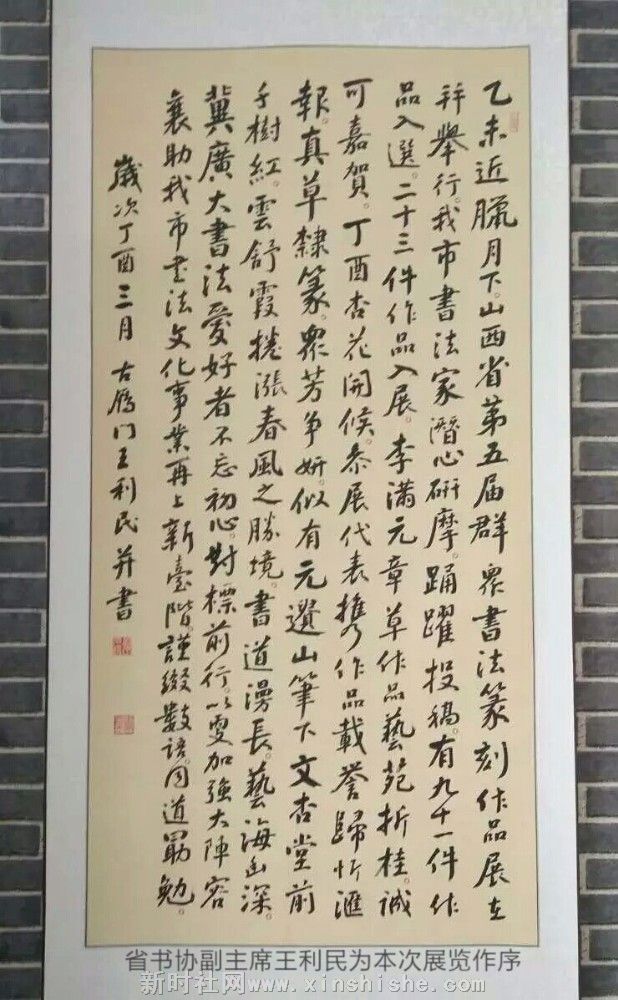 乙未近臘月下。山西省第五届群眾書法篆刻作品展在
并舉行。我市書法家潛心研摩。踊躍投稿。有九十一件作
品入選。二十三件作品入展。李满元章草作品藝苑折桂。誠
可嘉賀。丁酉杏花開候。参展代表携作品載誉歸忻滙
報。真草隸篆。眾芳争妍。似有元遺山筆下文杏堂前
千樹紅。雲舒霞捲漲春風之勝境。書道漫長。藝海幽深。
冀廣大書法愛好者不忘初心。對標前行。以更加強大陣容
襄助我市書法文化事業再上新臺階。謹綴數語。同道勖勉。
歲次丁酉三月古雁门王利民并書
省书协副主席王利民为本次展览作序
新时社网www.xinshishe.com